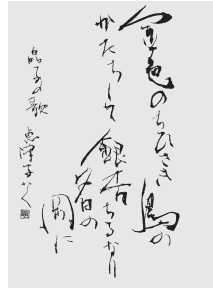 金色のちひさき鳥の
かたちして銀杏ちるなり
夕日の
岡に
晶子の歌